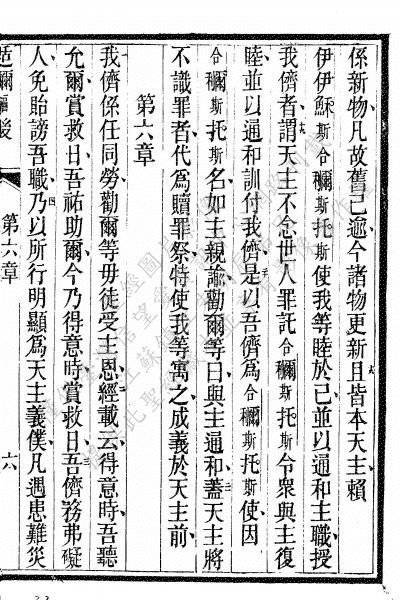 係新物凡故舊已遞今諸物更新且皆本天主賴
伊伊穌斯合穪斯托斯使我等睦於己並以通和主職授
我儕者謂天主不念世人罪託合穪斯托斯令衆與主復
睦並以通和訓付我儕是以吾儕爲合穪斯托斯使因
合穪斯托斯名如主親諭勸爾等曰與主通和蓋天主將
不識罪者代爲贖罪祭特使我等寓之成義於天主前
第六章
我儕係任同勞勸爾等毋徒受主恩經載云得意時吾聽
允爾賞救日吾祐助爾今乃得意時賞救日吾儕務弗礙
人免貽謗吾職乃以所行明顯爲天主義僕凡遇患難災
第六章
六